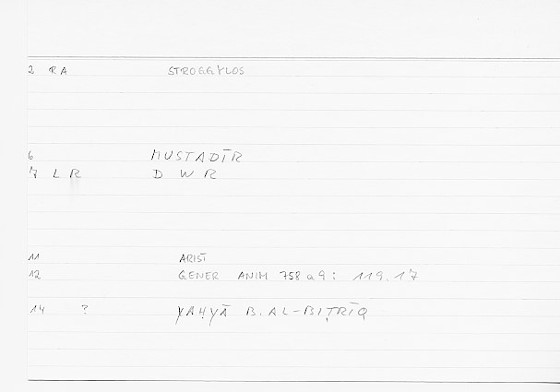 2 RA STROGGYLOS
6 MUSTADĪR
7 L R D W R
11 ARIST
12 GENER ANIM 758 a 9 : 119.17
14 ? YAḤYĀ B. AL-BIṬRĪQ